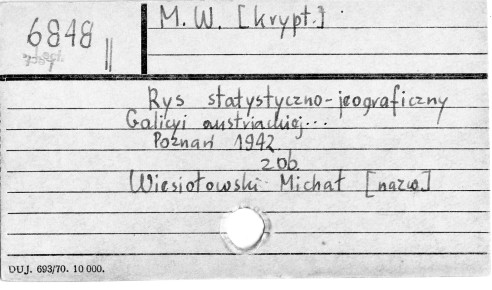 6848 ||
M. W. [krypt.]
Rys statystyczno-jeograficzny
Galicyi austriackiej...
Poznań 1942
zob.
Wiesiołowski Michał [nazw.]
DUJ. 693/70. 10 000.